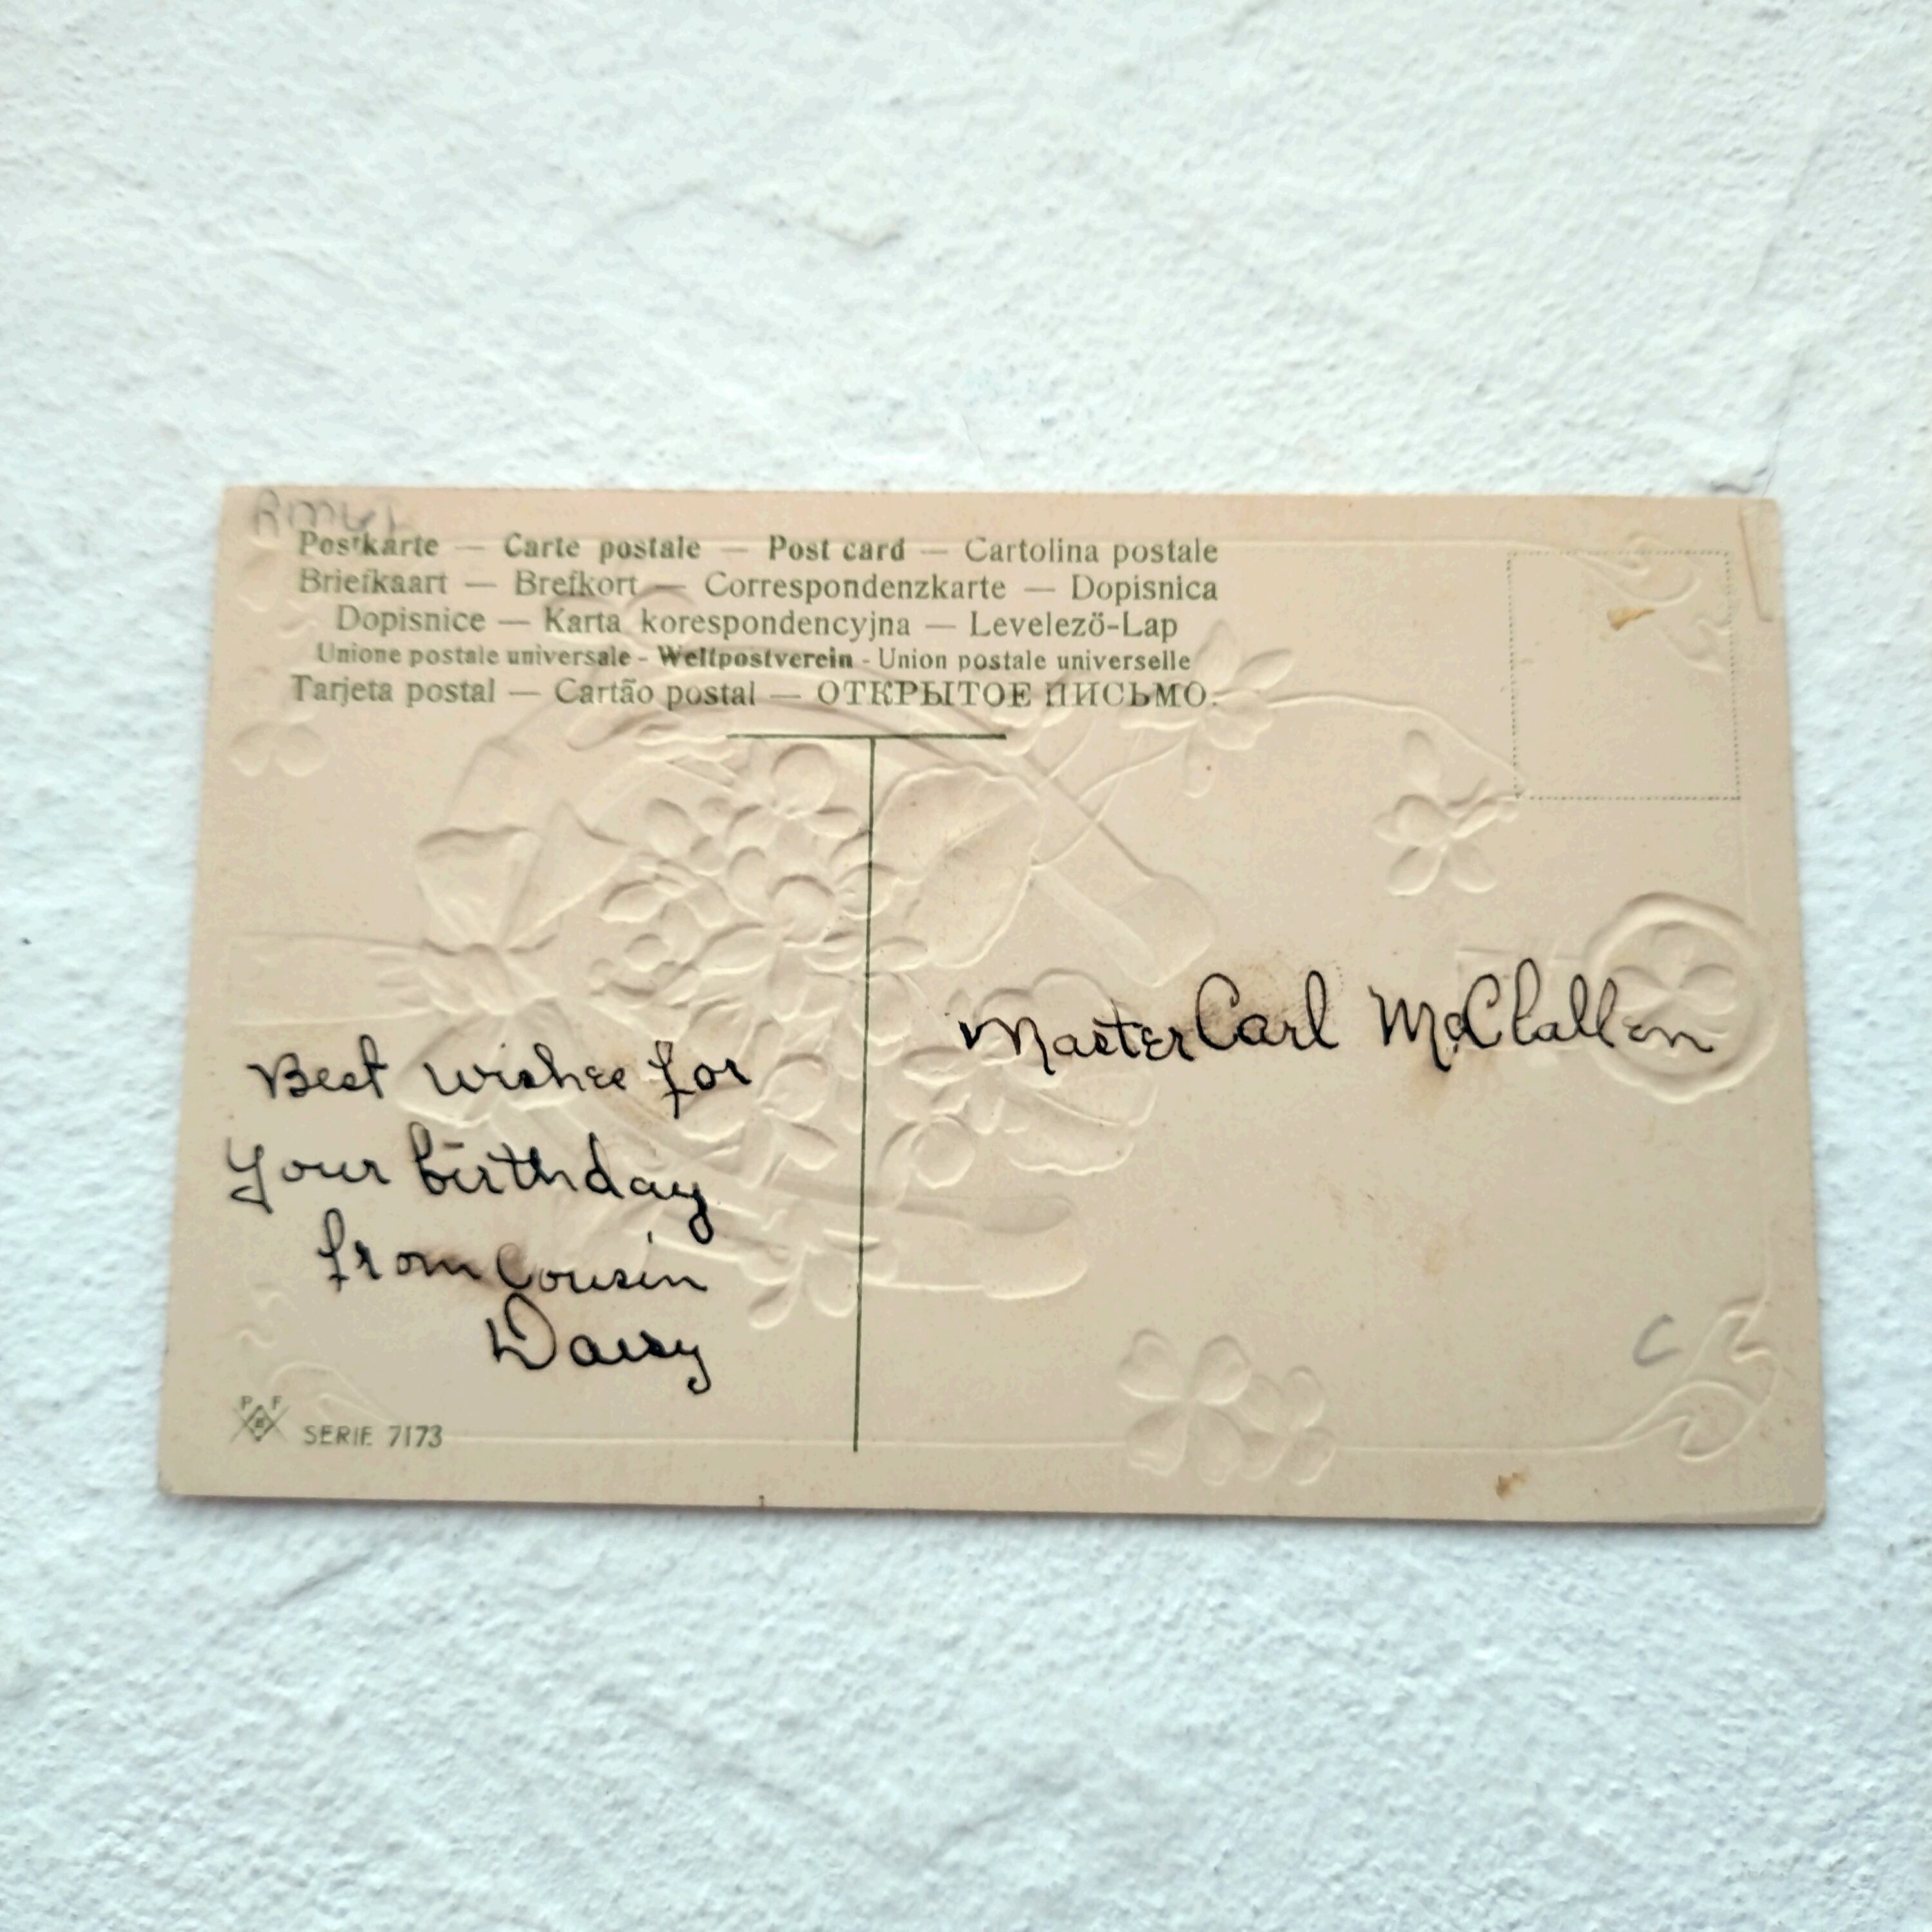 Postkarte — Carte postale — Post card — Cartolina postale
Briefkaart — Brefkort — Correspondenzkarte — Dopisnica
Dopisnice — Karta korespondencyjna — Levelező-Lap
Unione postale universale - Weltpostverein - Union postale universelle
Tarjeta postal — Cartão postal — ОТКРЫТОЕ ПИСЬМО.
Best wishes for
your birthday
from Cousin
Daisy
Master Carl McClallen
C
P F
B
SERIE 7173